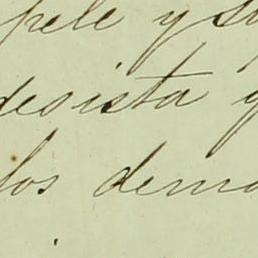 pele y su
desista y
los dema